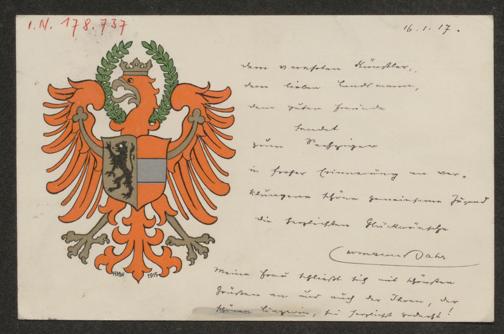 I.N. 178.737
16.1.17.
dem verehrten Künstler,
dem lieben Landsmann,
dem guten Freunde
sendet
zum Sechziger
in froher Erinnerung an ver-
klungene schöne gemeinsame Jugend
die herzlichsten Glückwünsche
Meine Frau schließt sich mit schönsten
Grüßen an und auch der Ihren, der
1915